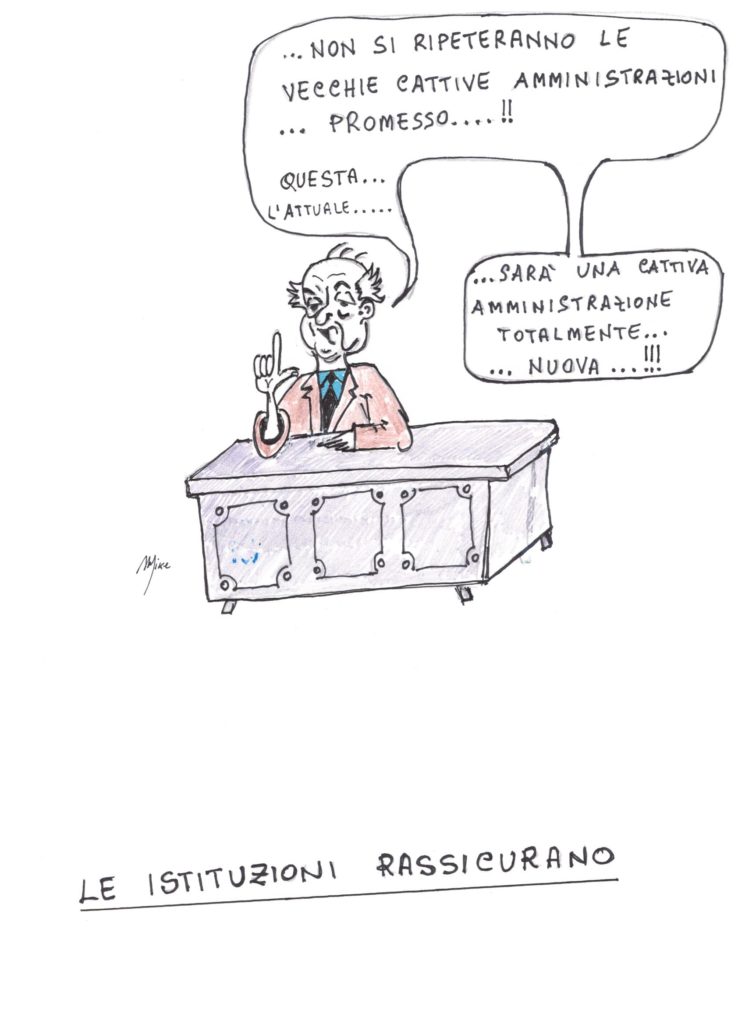 ...NON SI RIPETERANNO LE
VECCHIE CATTIVE AMMINISTRAZIONI
... PROMESSO....!!
QUESTA...
L'ATTUALE.....
...SARÀ UNA CATTIVA
AMMINISTRAZIONE
TOTALMENTE...
... NUOVA ...!!!
LE ISTITUZIONI RASSICURANO